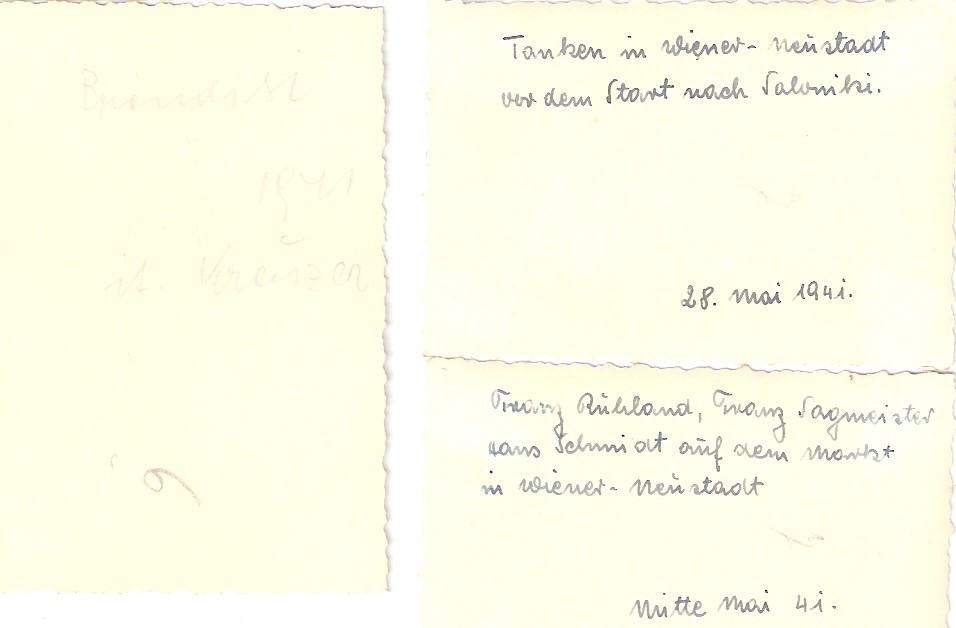 Brindisi
1941
it. Kreuzer
9
Tanken in Wiener-Neustadt
vor dem Start nach Saloniki.
28. Mai 1941.
Franz Rühland, Franz Sagmeister
Hans Schmidt auf dem Markt
in Wiener-Neustadt
Mitte Mai 41.